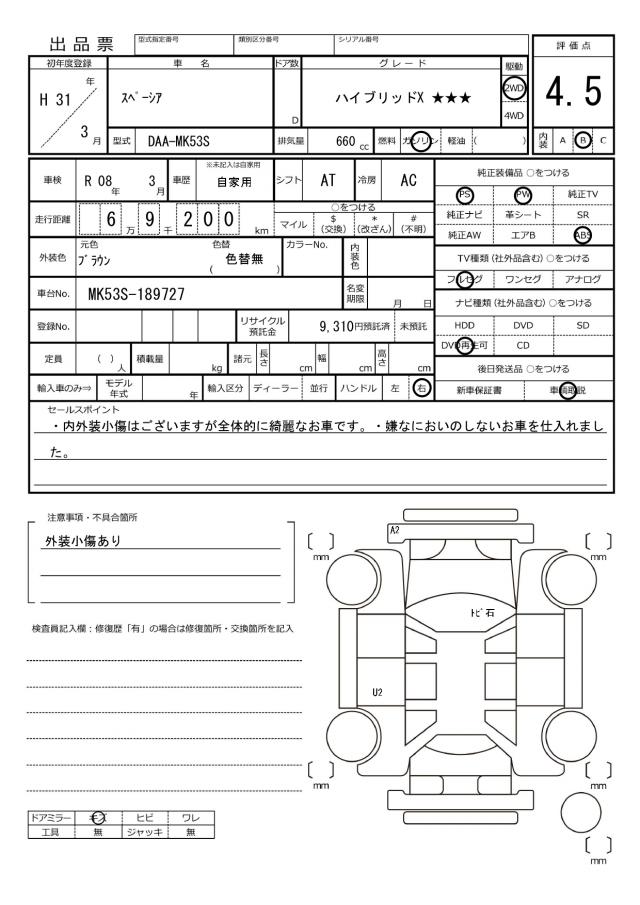 出品票
型式指定番号 類別区分番号 シリアル番号
評価点
4.5
内装 A B C
初年度登録 車名 ドア数 グレード 駆動
H 31 年 3 月
スペーシア
D
ハイブリッドX ★★★
2WD
4WD
型式 DAA-MK53S 排気量 660 cc 燃料 ガソリン 軽油 ( )
車検 R 08 年 3 月 車歴 ※未記入は自家用 自家用 シフト AT 冷房 AC
走行距離 6 万 9 千 2 0 0 km
○をつける
マイル $(交換) *(改ざん) #(不明)
外装色 元色 ブラウン 色替 ( 色替無 ) カラーNo. 内装色
車台No. MK53S-189727 名変期限 月 日
登録No. リサイクル預託金 9,310円預託済 未預託
定員 ( ) 人 積載量 kg 諸元 長さ cm 幅 cm 高さ cm
輸入車のみ⇒ モデル年式 年 輸入区分 ディーラー 並行 ハンドル 左 右
純正装備品 ○をつける
PS PW 純正TV
純正ナビ 革シート SR
純正AW エアB ABS
TV種類(社外品含む)○をつける
フルセグ ワンセグ アナログ
ナビ種類(社外品含む)○をつける
HDD DVD SD
DVD再生可 CD
後日発送品 ○をつける
新車保証書 車輌取説
セールスポイント
・内外装小傷はございますが全体的に綺麗なお車です。・嫌なにおいのしないお車を仕入れまし
た。
注意事項・不具合箇所
外装小傷あり
検査員記入欄：修復歴「有」の場合は修復箇所・交換箇所を記入
ドアミラー キズ ヒビ ワレ
工具 無 ジャッキ 無
A2
[ ] mm
[ ] mm
トビ石
U2
[ ] mm
[ ] mm
[ ] mm